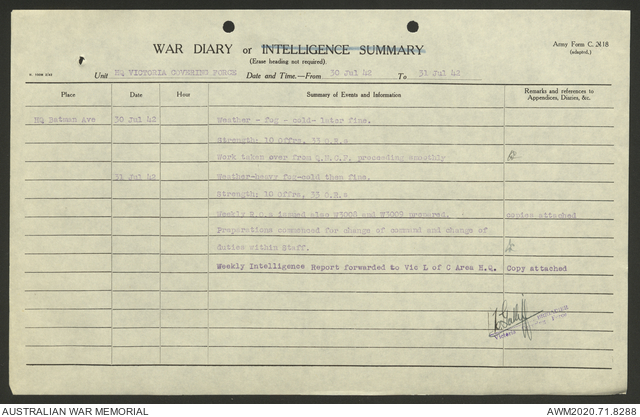 WAR DIARY or INTELLIGENCE SUMMARY
(Erase heading not required).
Army Form C. 2118
(adapted.)
Unit HQ VICTORIA COVERING FORCE Date and Time.—From 30 Jul 42 To 31 Jul 42
Place Date Hour Summary of Events and Information Remarks and references to Appendices, Diaries, &c.
HQ Batman Ave 30 Jul 42 Weather - fog - cold- later fine.
Strength: 10 Offrs, 33 O.R.s
Work taken over from proceeding smoothly
31 Jul 42 Weather-heavy fog-cold then fine.
Strength: 10 Offrs, 33 O.R.s
Weekly R.O.s issued also W3008 and W3009 prepared. copies attached
Preparations commenced for change of command and change of
duties within Staff.
Weekly Intelligence Report forwarded to Vic L of C Area H.Q. Copy attached
BRIGADIER
Victoria Force
AUSTRALIAN WAR MEMORIAL AWM2020.71.8288